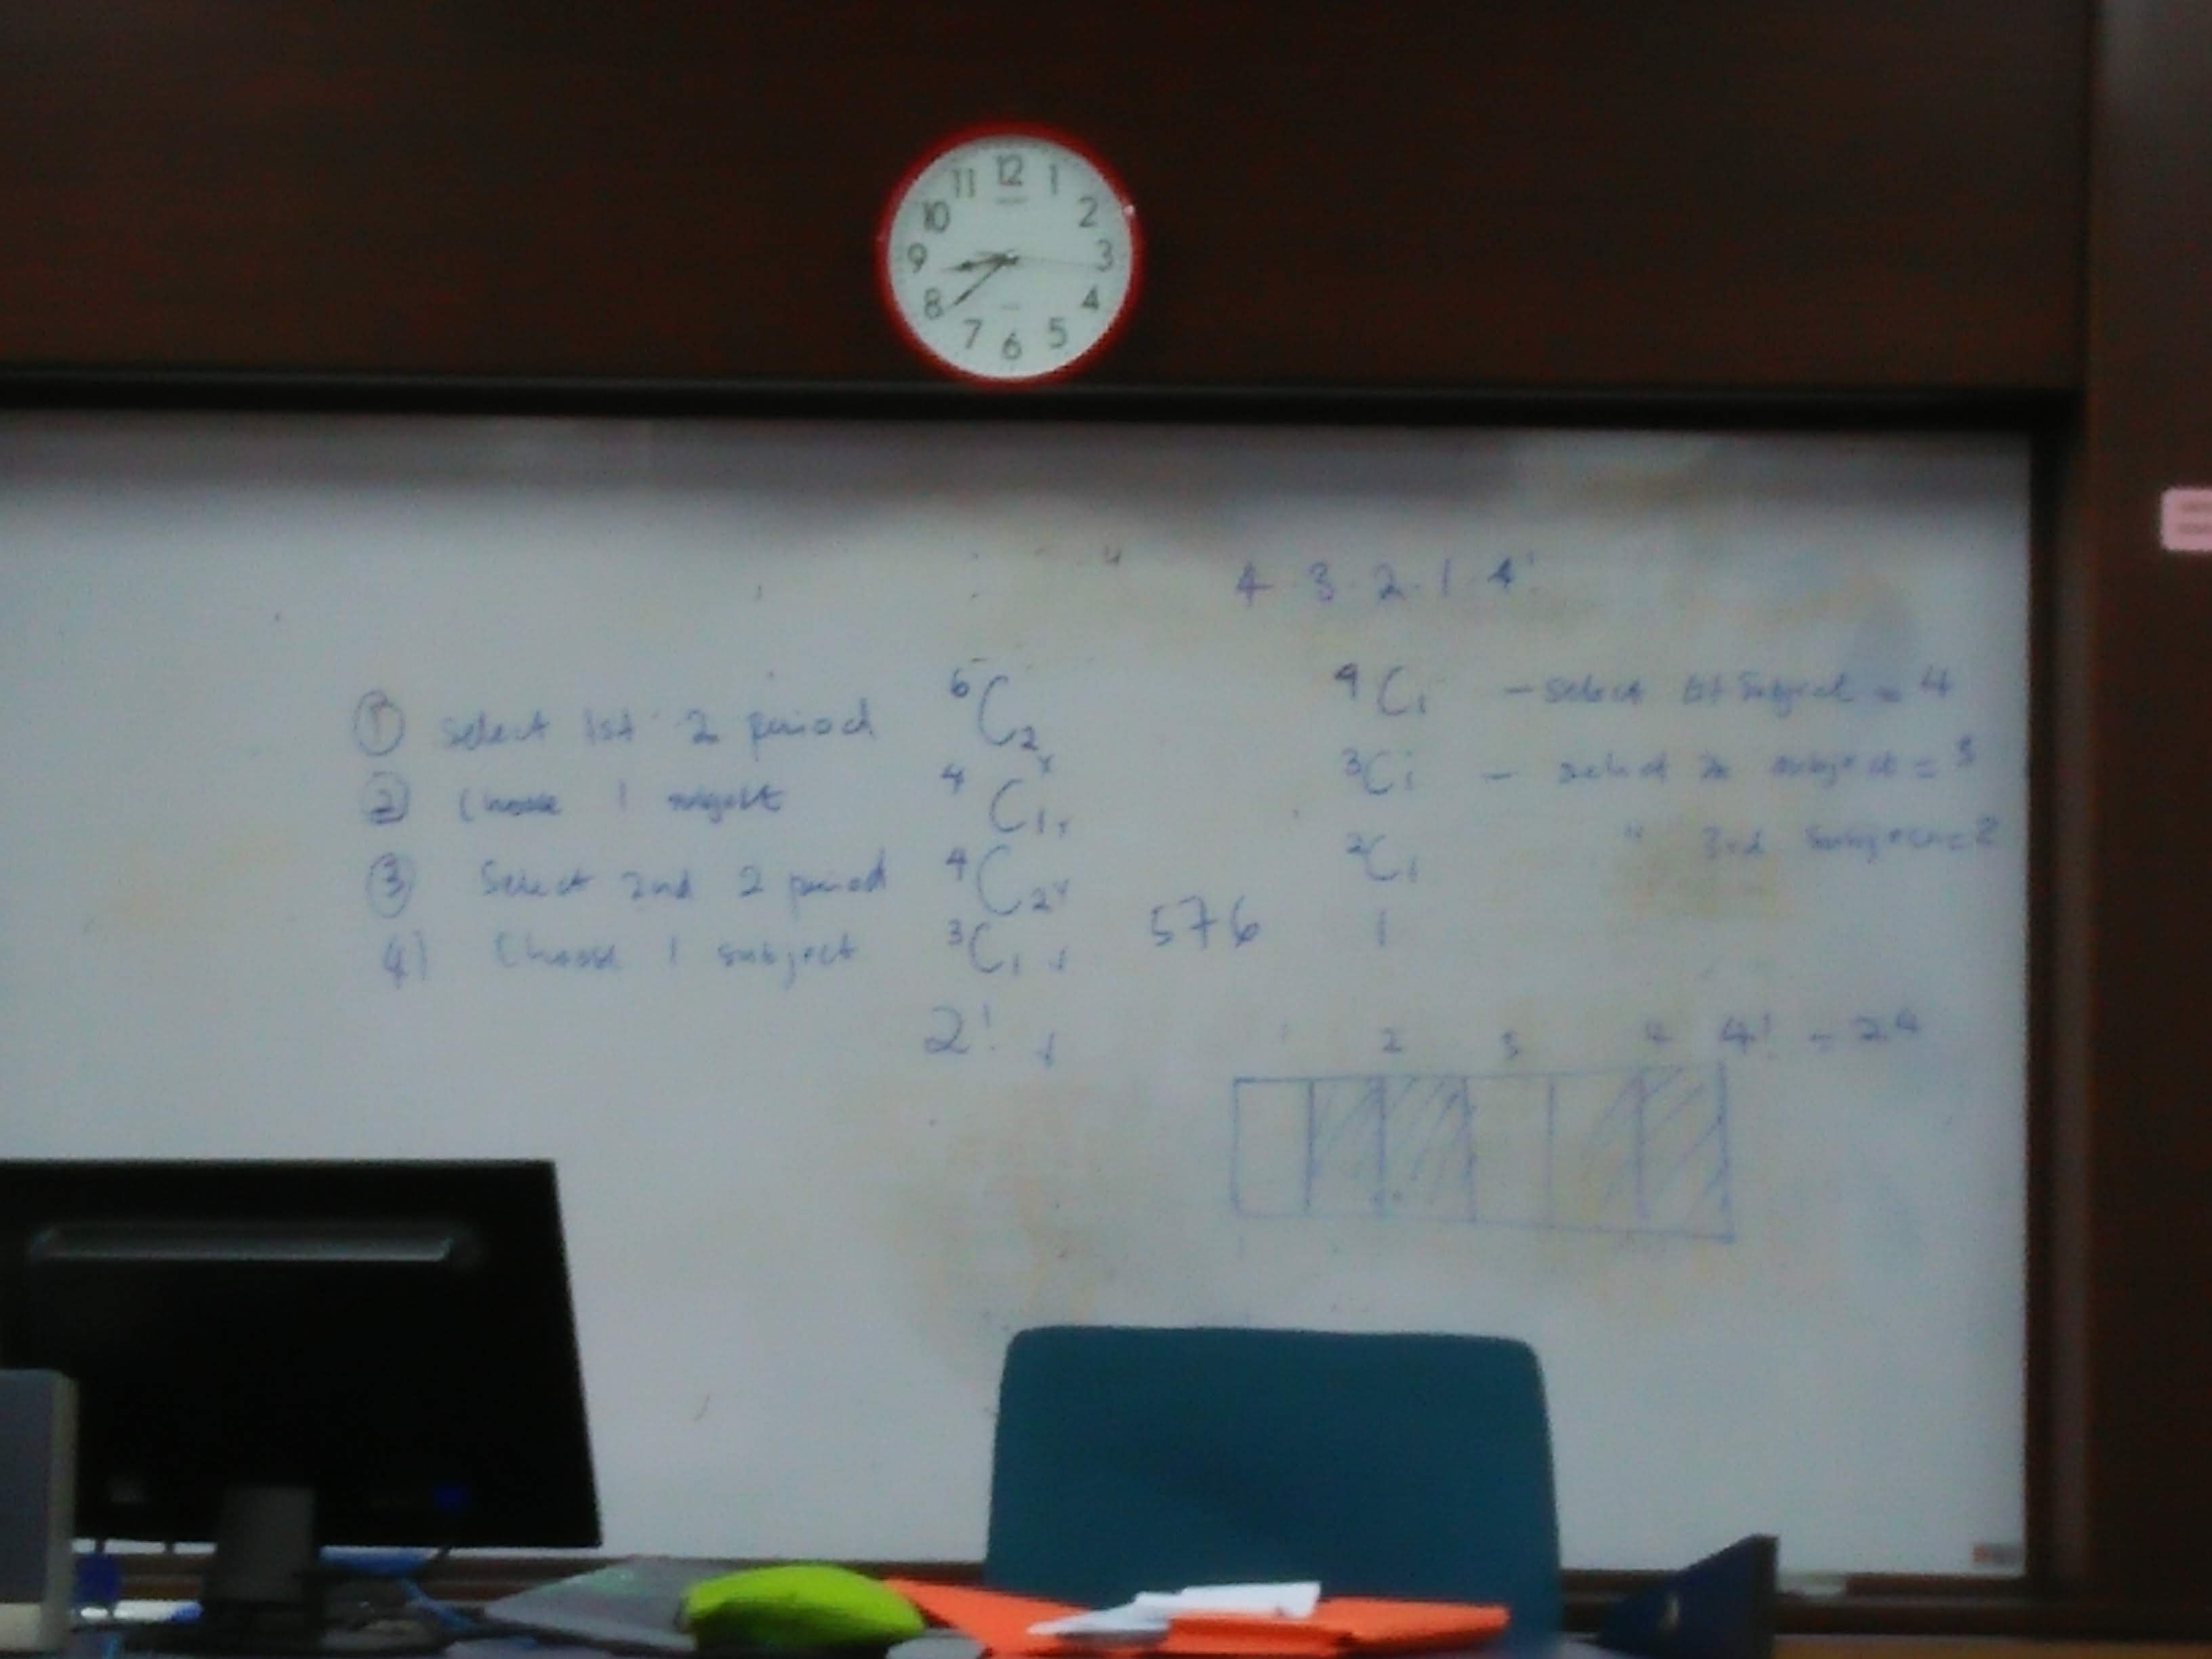 12
11 1
10 2
9 3
8 4
7 5
6
4 · 3 · 2 · 1 · 4!
① Select 1st 2 period ⁶C₂ ×
② Choose 1 subject ⁴C₁ ×
③ Select 2nd 2 period ⁴C₂ ×
4) Choose 1 subject ³C₁ ×
2!
576
⁴C₁ — select 1st subject = 4
³C₁ — select 2n subject = 3
²C₁ " 3rd subject = 2
1
1 2 3 4 4! = 24